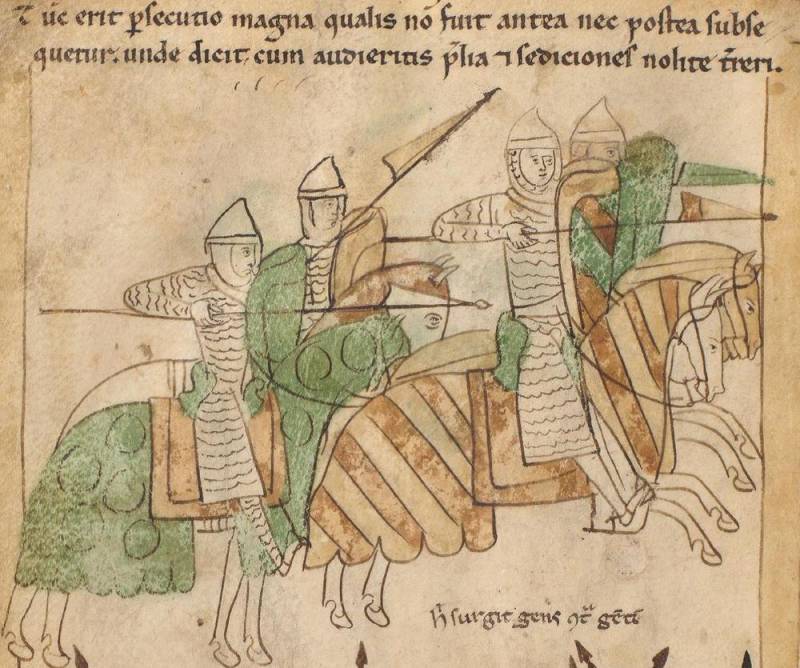 Tūc erit ꝑsecutio magna qualis nō fuit antea nec postea subse
quetur. unde dicit. cum audieritis p̄lia ⁊ sediciones nolite t̄reri.
surgit gens ꝯtͣ gētē